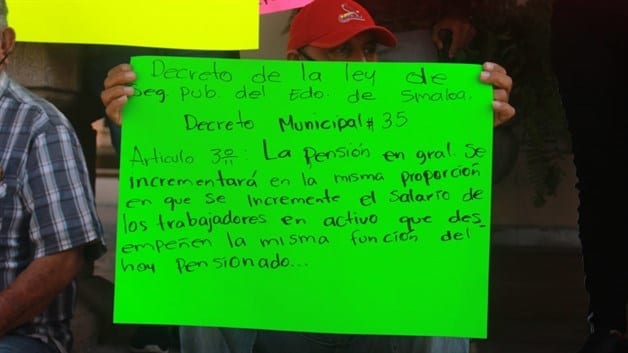 Decreto de la ley de
Seg. Pub. del Edo. de Sinaloa.
Decreto Municipal # 35
Articulo 3º: La pensión en gral. se
incrementará en la misma proporción
en que se incremente el salario de
los trabajadores en activo que des_
empeñen la misma función del
hoy pensionado...